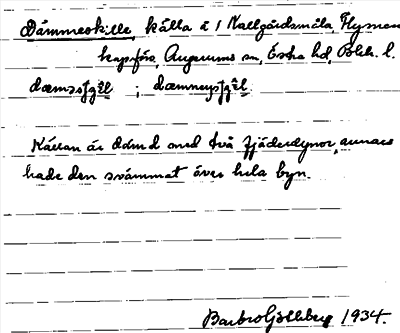 Dämmeskille, källa å 1 Vallgårdsmåla, Flymen
kapsförs, Augerums sn, Östra hd, Blek. l.
Källan är dämd med två fjäderdynor, annars
hade den svämmat över hela byn.
Barbro Göthberg 1934.